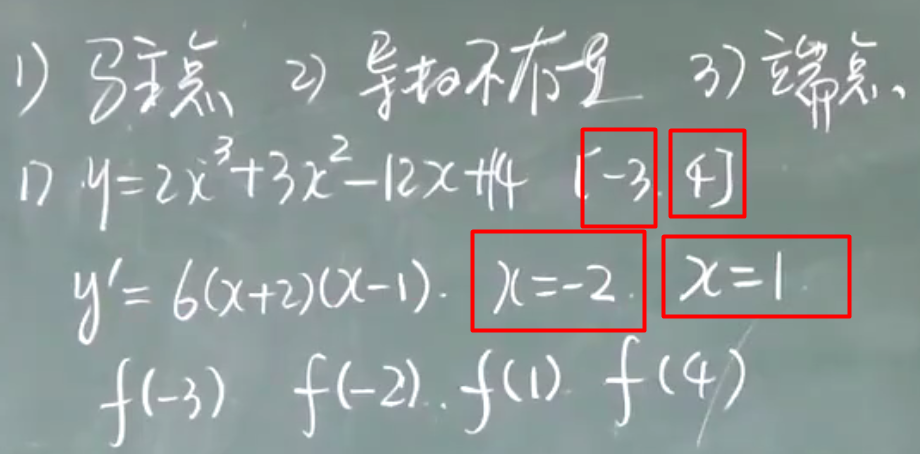 1) 驻点 2) 导数不存在 3) 端点、
1) y=2x³+3x²-12x+14 [-3, 4]
y′=6(x+2)(x-1). x=-2. x=1.
f(-3) f(-2). f(1) f(4)